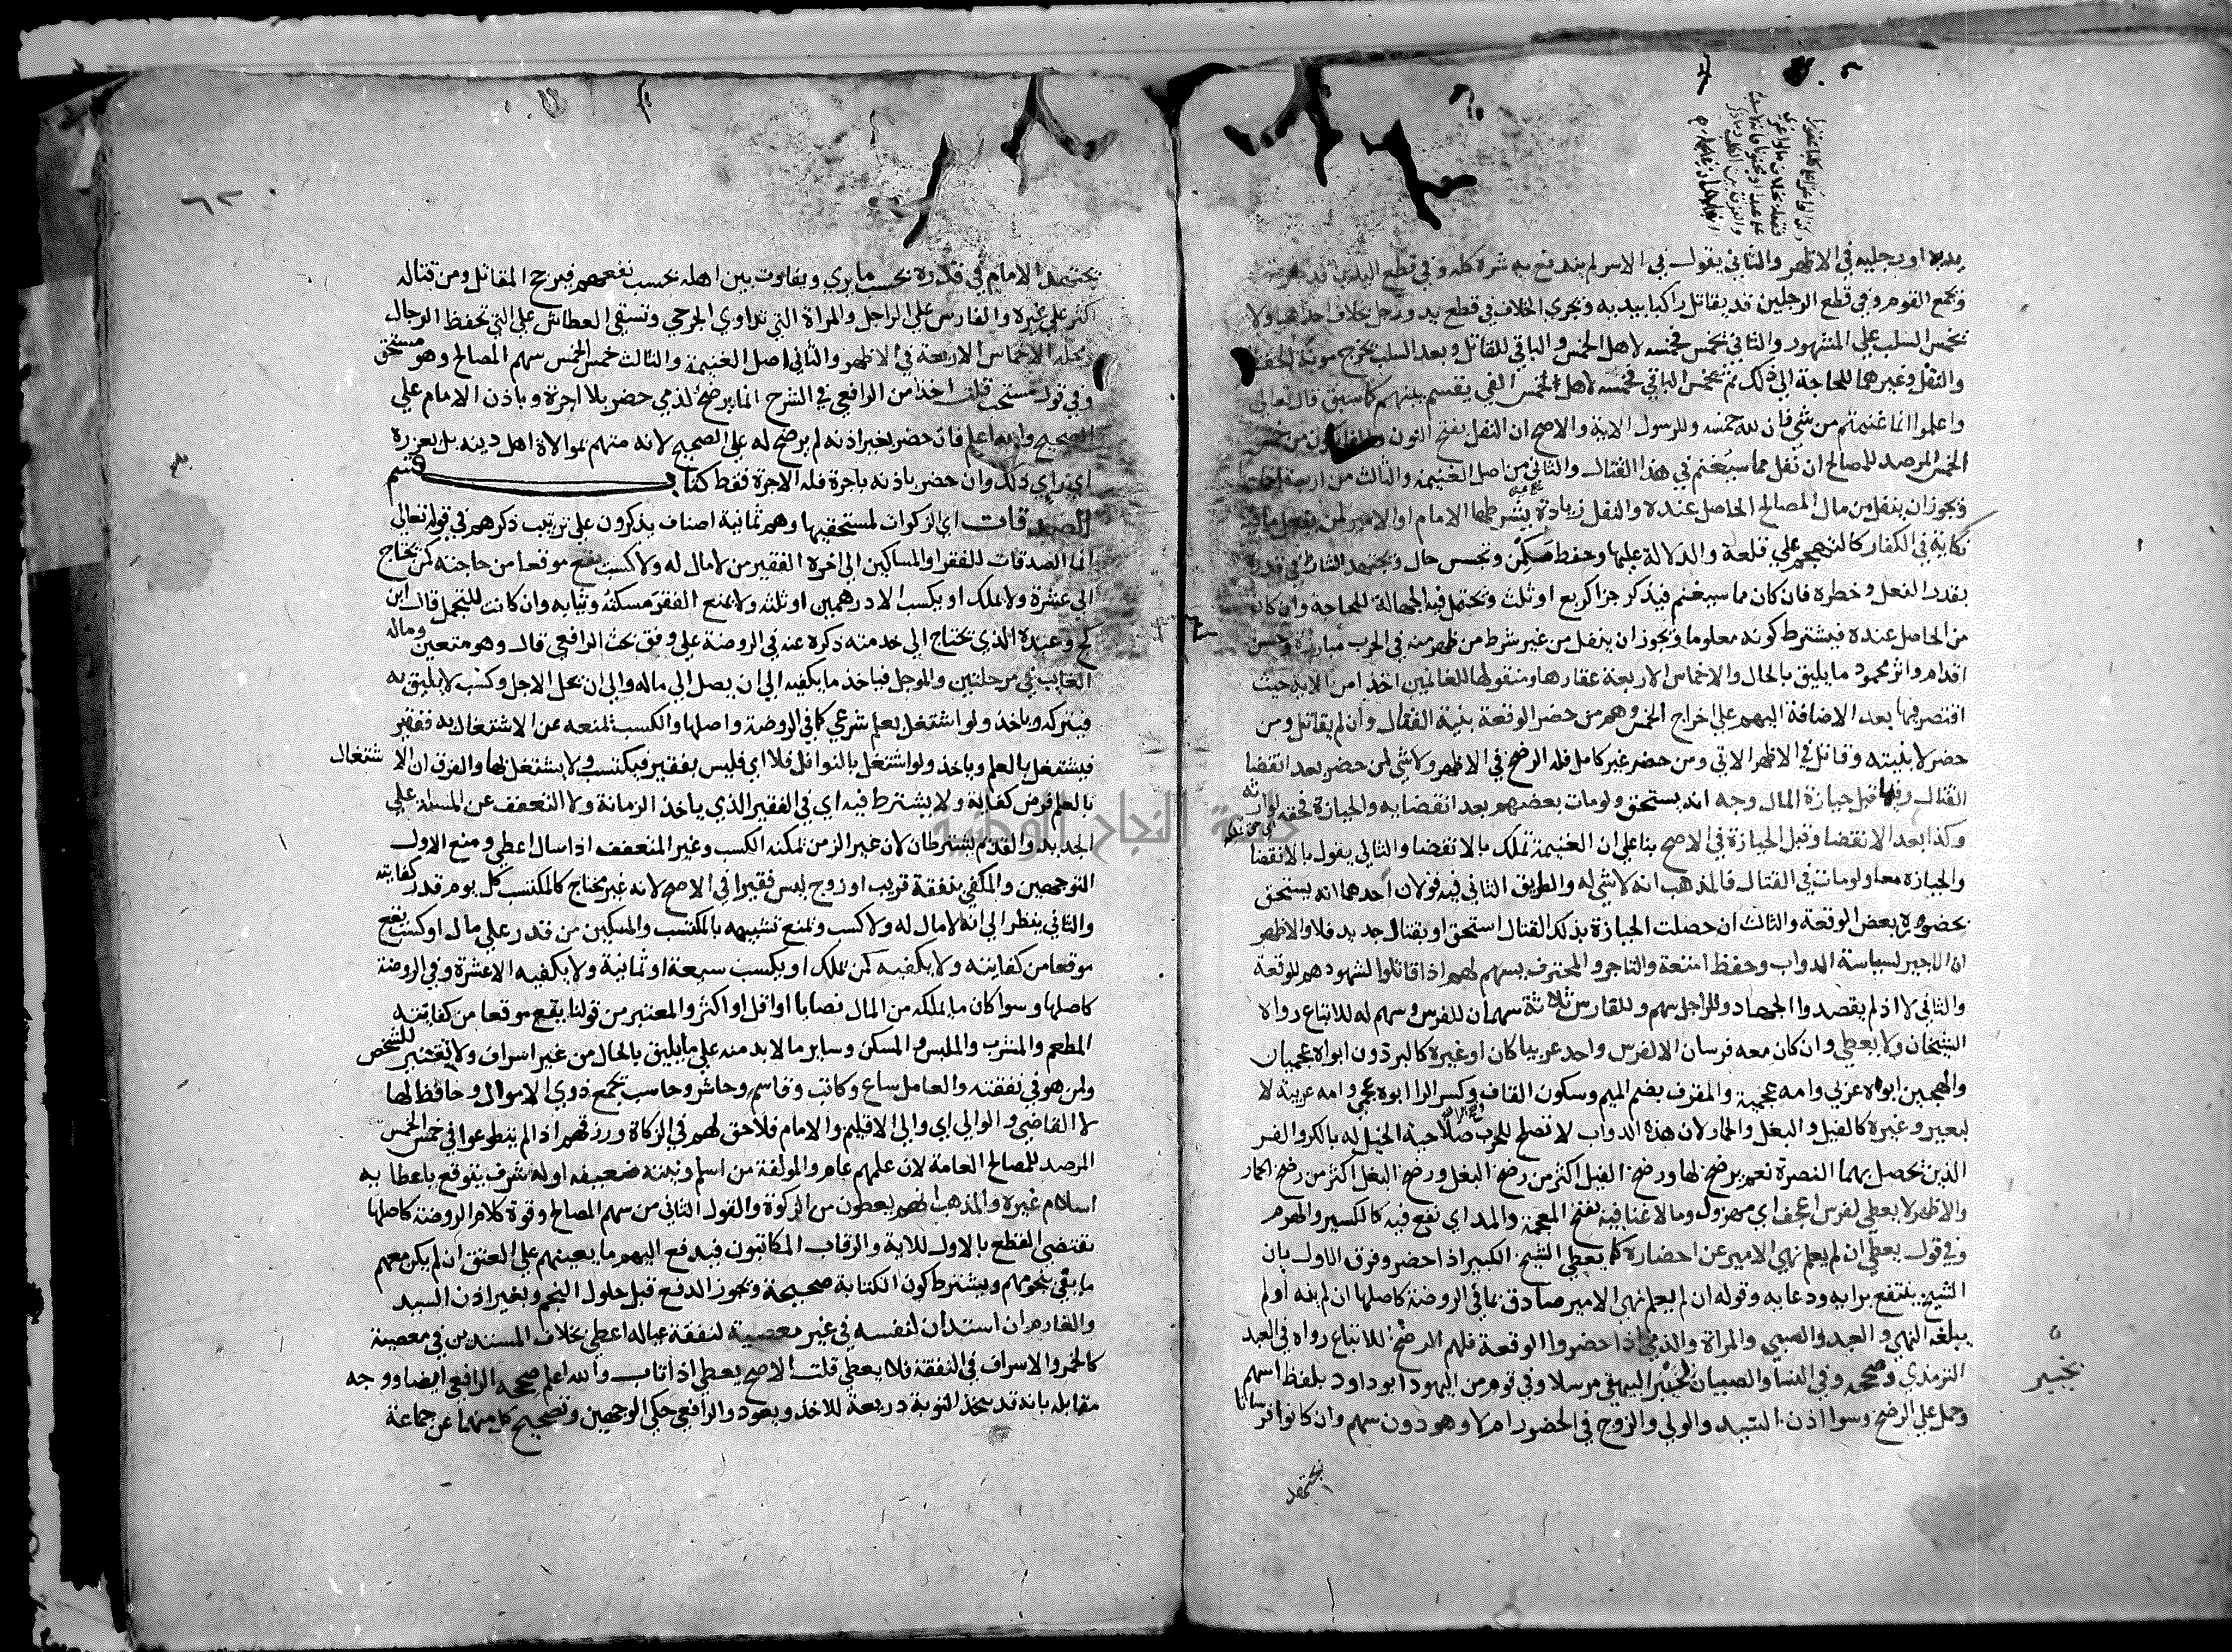 يديه او رجليه في الاظهر والثاني يقول في الاسر لم يندفع به شره كله وفي قطع اليدين قد يعرف
ويجمع القوم وفي قطع الرجلين قد يقاتل راكبا بيديه ويجري الخلاف في قطع يد ورجل بخلاف احداهما ولا
يخمس السلب علي المشهور والثاني يخمس فخمسه لاهل الخمس والباقي للقاتل وبعد السلب تخرج مونة الحفظ
والنقل وغيرهما للحاجة الي ذلك ثم يخمس الباقي فخمسه لاهل الخمس الفي يقسم بينهم كما سبق قال تعالي
واعلموا انما غنمتم من شي فان لله خمسه وللرسول الاية والاصح ان النفل بفتح النون والفا يكون من خمس
الخمس المرصد للمصالح ان نفل مما سيغنم في هذا القتال والثاني من اصل الغنيمة والثالث من اربعة اخماسها
ويجوز ان ينفل من مال المصالح الحاصل عنده والنفل زيادة يشرطها الامام او الامير لمن يفعل ما فيه
نكاية في الكفار كالتهجم علي قلعة والدلالة عليها وحفظ مكمن وتجسس حال ويجتهد الشارط في قدره
بقدر الفعل وخطره فان كان مما سيغنم فيذكر جزا كربع او ثلث وتحتمل فيه الجهالة للحاجة وان كان
من الحاصل عنده فيشترط كونه معلوما ويجوز ان ينفل من غير شرط من ظهر منه في الحرب مبارزة وحسن
اقدام واثر محمود ما يليق بالحال والاخماس الاربعة عقارها ومنقولها للغانمين اخذا من الاية حيث
اقتصر فيها بعد الاضافة اليهم علي اخراج الخمس وهم من حضر الوقعة بنية القتال وان لم يقاتل ومن
حضر لا بنيته وقاتل في الاظهر الاتي ومن حضر غير كامل فله الرضخ في الاظهر ولا شي لمن حضر بعد انقضا
القتال وفيما قبل حيازة المال وجه انه يستحق ولو مات بعضهم بعد انقضايه والحيازة فحقه لوارثه
وكذا بعد الانقضا وقبل الحيازة في الاصح بنا علي ان الغنيمة تملك بالانقضا والثاني يقول بالانقضا
والحيازة معا ولو مات في القتال فالمذهب انه لا شي له والطريق الثاني فيه قولان احدهما انه يستحق
بحضوره بعض الوقعة والثالث ان حصلت الحيازة بذلك القتال استحق او بقتال جديد فلا والاظهر
ان الاجير لسياسة الدواب وحفظ امتعة والتاجر والمحترف يسهم لهم اذا قاتلوا لشهودهم للوقعة
والثاني لا اذ لم يقصدوا الجهاد وللراجل سهم وللفارس ثلاثة سهمان للفرس وسهم له للاتباع رواه
الشيخان ولا يعطي وان كان معه فرسان الا لفرس واحد عربيا كان او غيره كالبرذون ابواه عجميان
والهجين ابواه عربي وامه عجمية والمقرف بضم الميم وسكون القاف وكسر الرا ابوه عجمي وامه عربية لا
لبعير وغيره كالفيل والبغل والحمار لان هذه الدواب لا تصلح للحرب صلاحية الخيل له بالكر والفر
الذين تحصل بهما النصرة نعم يرضخ لها ورضخ الفيل اكثر من رضخ البغل ورضخ البغل اكثر من رضخ الحمار
والاظهر لا يعطي لفرس اعجف اي مهزول وما لا غنا فيه بفتح المعجمة والمد اي نفع فيه كالكسير والهرم
وفي قول يعطي ان لم يعلم نهي الامير عن احضاره كما يعطي الشيخ الكبير اذا حضر وفرق الاول بان
الشيخ ينتفع برايه ودعايه وقوله ان لم يعلم نهي الامير صادق بما في الروضة كاصلها ان لم ينه او لم
يبلغه النهي والعبد والصبي والمراة والذمي اذا حضروا الوقعة فلهم الرضخ للاتباع رواه في العبد
الترمذي وصححه وفي النسا والصبيان بخيبر البيهقي مرسلا وفي قوم من اليهود ابو داود بلفظ اسهم
وحمل علي الرضخ وسوا اذن السيد والولي والزوج في الحضور ام لا وهو دون سهم وان كانوا فرسانا
بخيبر
يجتهد
٦٢
يجتهد الامام في قدره بحسب ما يري ويفاوت بين اهله بحسب نفعهم فيرجح المقاتل ومن قتاله
اكثر علي غيره والفارس علي الراجل والمراة التي تداوي الجرحي وتسقي العطاش علي التي تحفظ الرحال
ومحله الاخماس الاربعة في الاظهر والثاني اصل الغنيمة والثالث خمس الخمس سهم المصالح وهو مستحق
وفي قول مستحب قلت اخذا من الرافعي في الشرح انما يرضخ لذمي حضر بلا اجرة وباذن الامام علي
الصحيح والله اعلم فان حضر بغير اذنه لم يرضخ له علي الصحيح لانه متهم بموالاة اهل دينه بل يعزره
اي ان راي ذلك وان حضر باذنه باجرة فله الاجرة فقط كتاب قسم
الصدقات اي الزكوات لمستحقيها وهم ثمانية اصناف يذكرون علي ترتيب ذكرهم في قوله تعالي
انما الصدقات للفقرا والمساكين الي اخره الفقير من لا مال له ولا كسب يقع موقعا من حاجته كمن يحتاج
الي عشرة ولا يملك او يكسب الا درهمين او ثلثه ولا يمنع الفقر مسكنه وثيابه وان كانت للتجمل قال ابن
كج وعبده الذي يحتاج الي خدمته ذكره عنه في الروضة علي وفق بحث الرافعي قال وهو متعين وماله
الغايب في مرحلتين والموجل فياخذ ما يكفيه الي ان يصل الي ماله والي ان يحل الاجل وكسب لا يليق به
فيتركه وياخذ ولو اشتغل بعلم شرعي كما في الروضة واصلها والكسب يمنعه عن الاشتغال به ففقير
فيشتغل بالعلم وياخذ ولو اشتغل بالنوافل فلا اي فليس بفقير فيكتسب ولا يشتغل بها والفرق ان الاشتغال
بالعلم فرض كفاية ولا يشترط فيه اي في الفقير الذي ياخذ الزمانة ولا التعفف عن المسالة علي
الجديد والقديم يشترطان لان غير الزمن يمكنه الكسب وغير المتعفف اذا سال اعطي ومنع الاول
التوجهين والمكفي بنفقة قريب او زوج ليس فقيرا في الاصح لانه غير محتاج كالمكتسب كل يوم قدر كفايته
والثاني ينظر الي انه لا مال له ولا كسب ويمنع تشبيهه بالمكتسب والمسكين من قدر علي مال او كسب يقع
موقعا من كفايته ولا يكفيه كمن يملك او يكسب سبعة او ثمانية ولا يكفيه الا عشرة وفي الروضة
كاصلها وسوا كان ما يملكه من المال نصابا او اقل او اكثر والمعتبر من قولنا يقع موقعا من كفايته
المطعم والمشرب والملبس والمسكن وساير ما لا بد منه علي ما يليق بالحال من غير اسراف ولا تقتير للشخص
ولمن هو في نفقته والعامل ساع وكاتب وقاسم وحاشر وحاسب يجمع ذوي الاموال وحافظ لها
لا القاضي والوالي اي والي الاقليم والامام فلا حق لهم في الزكاة ورزقهم اذا لم يتطوعوا في خمس الخمس
المرصد للمصالح العامة لان عملهم عام والمولفة من اسلم ونيته ضعيفه او له شرف يتوقع باعطايه
اسلام غيره والمذهب انهم يعطون من الزكوة والقول الثاني من سهم المصالح وقوة كلام الروضة كاصلها
تقتضي القطع بالاول للاية والرقاب المكاتبون فيدفع اليهم ما يعينهم علي العتق ان لم يكن معهم
ما يفي بنجومهم ويشترط كون الكتابة صحيحة ويجوز الدفع قبل حلول النجم وبغير اذن السيد
والغارم ان استدان لنفسه في غير معصية لنفقة عياله اعطي بخلاف المستدين في معصية
كالخمر والاسراف في النفقة فلا يعطي قلت الاصح يعطي اذا تاب والله اعلم صححه الرافعي ايضا ووجه
مقابله بانه قد يتخذ التوبة ذريعة للاخذ ويعود والرافعي حكي الوجهين وتصحيح كل منهما عن جماعة
جامعة النجاح الوطنية